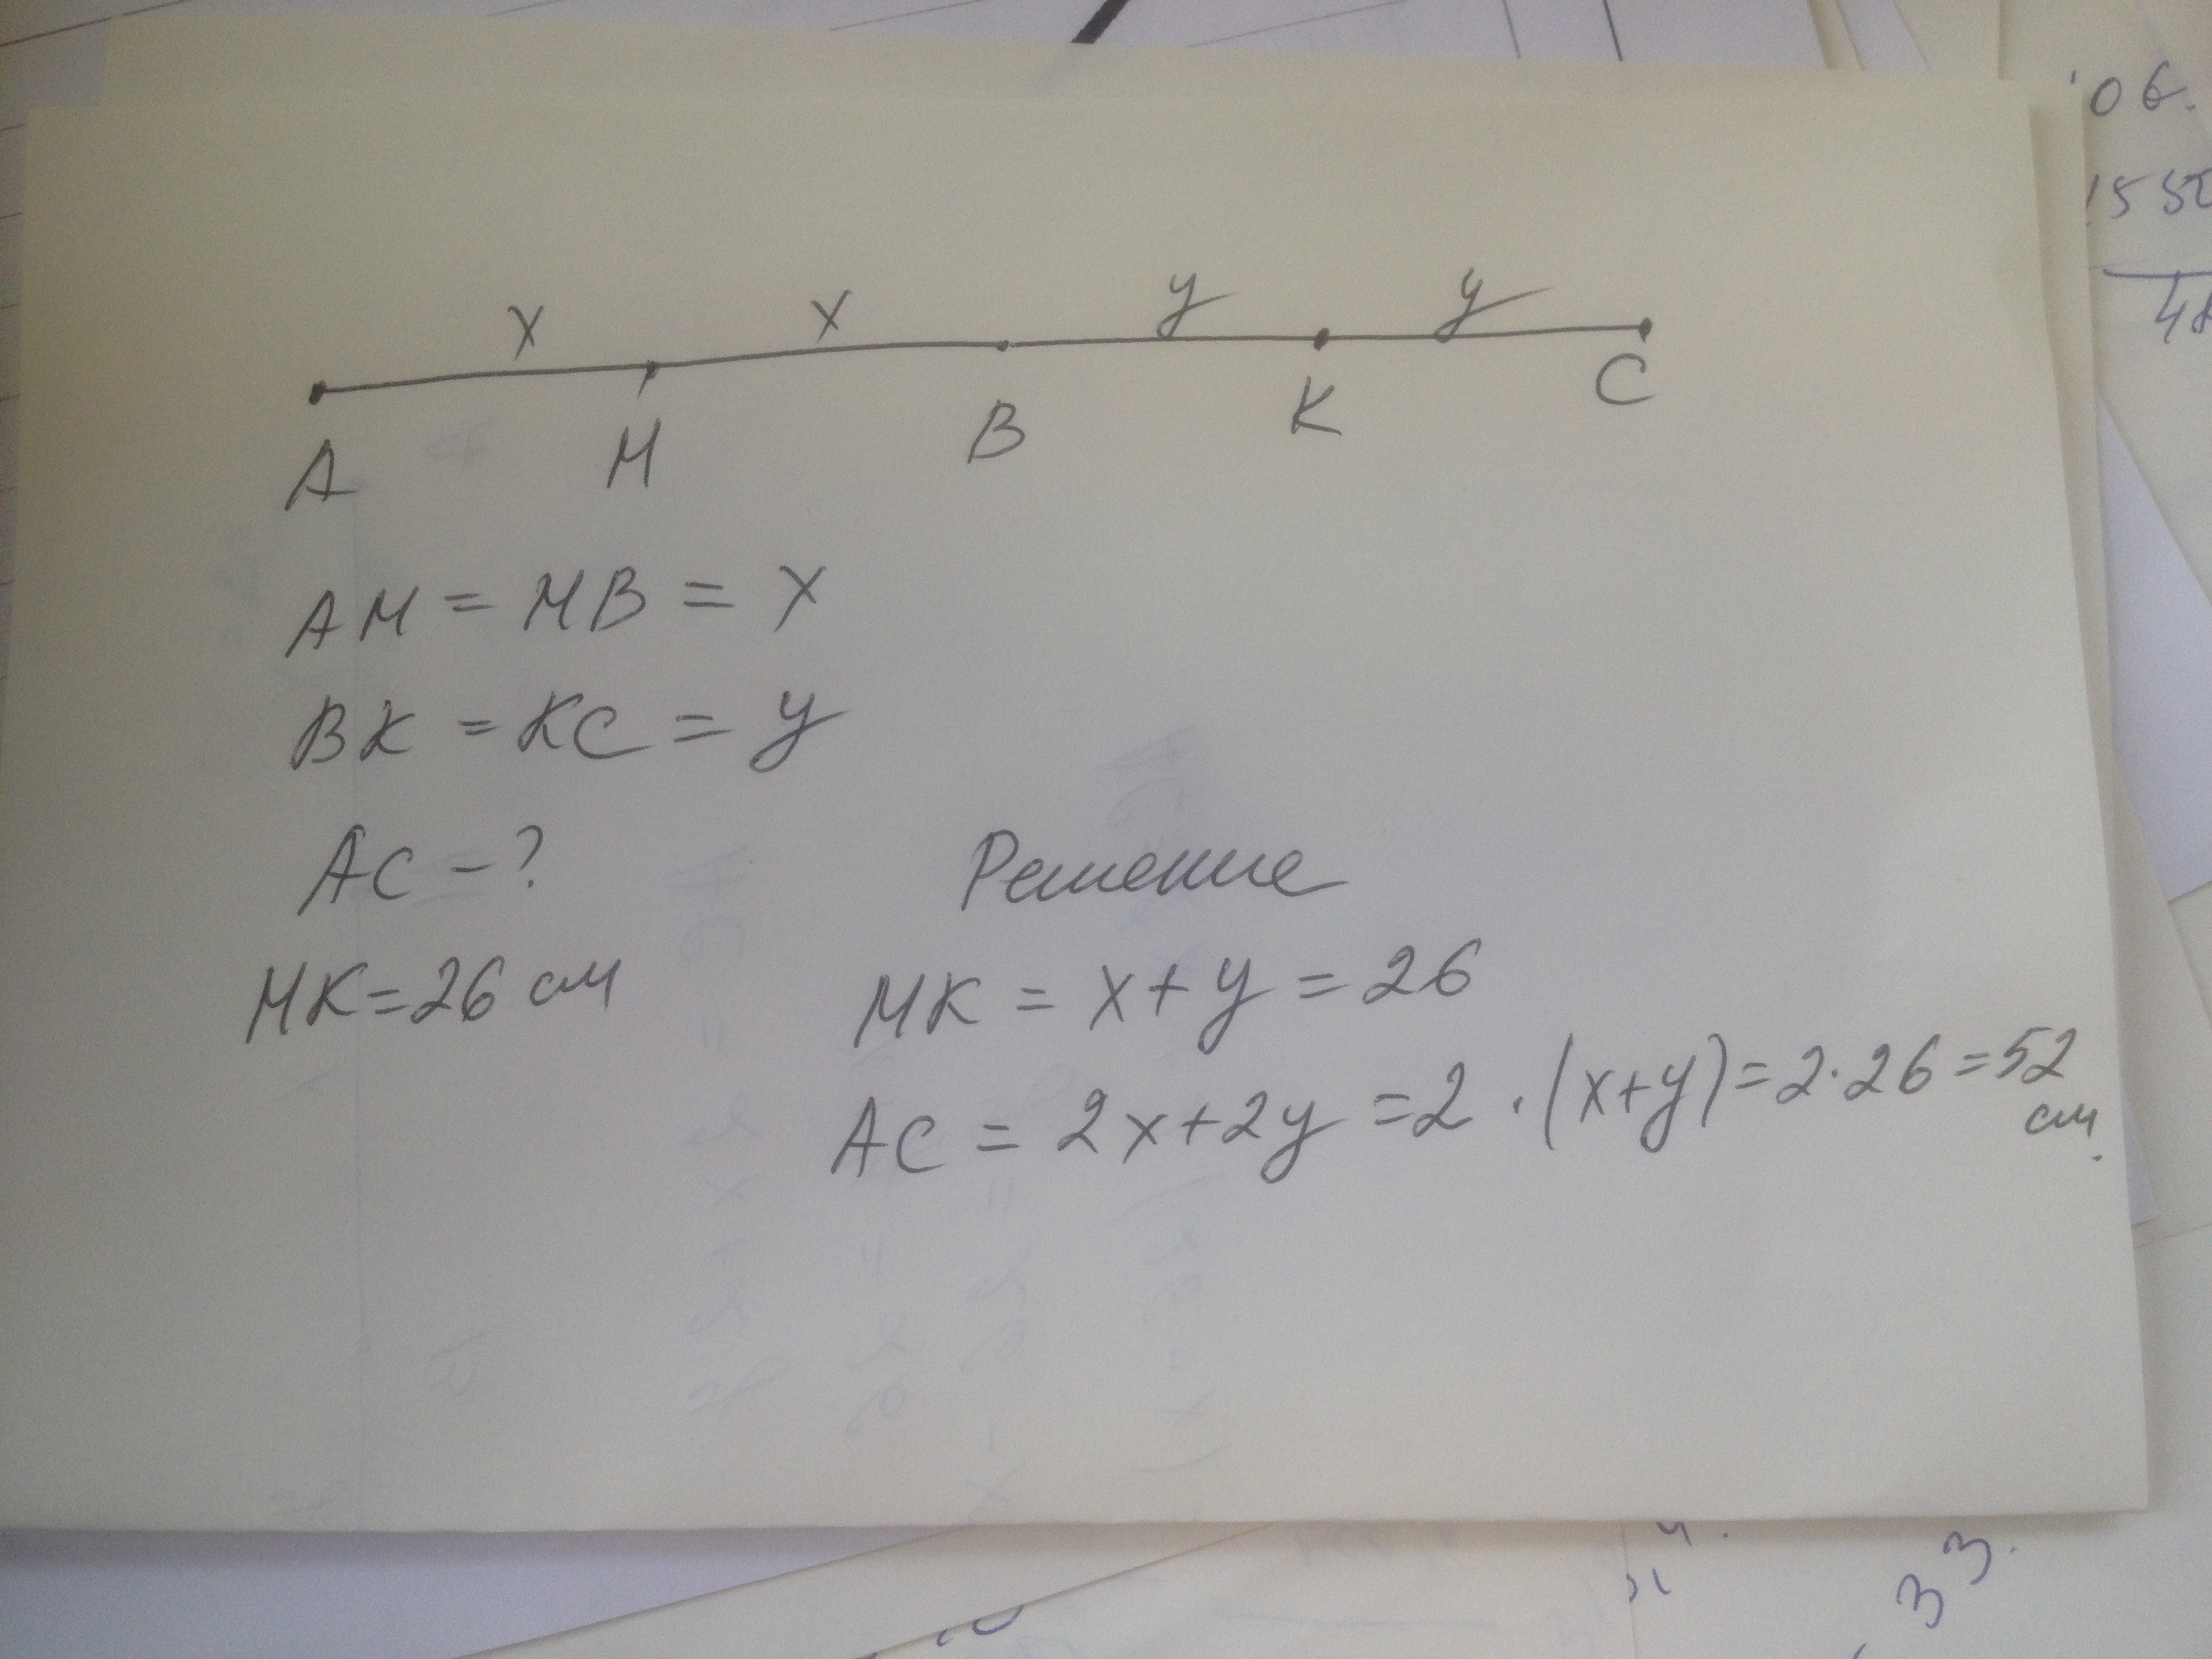 x x y y
A M B K C
AM = MB = x
BK = KC = y
AC - ?
Решение
MK = 26 см
MK = x + y = 26
AC = 2x + 2y = 2 · (x+y) = 2 · 26 = 52 см.
06.
33.